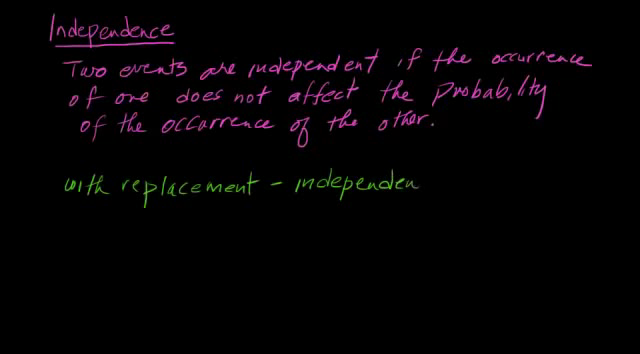 Independence
Two events are independent if the occurrence
of one does not affect the Probability
of the occurrence of the other.
with replacement - independen